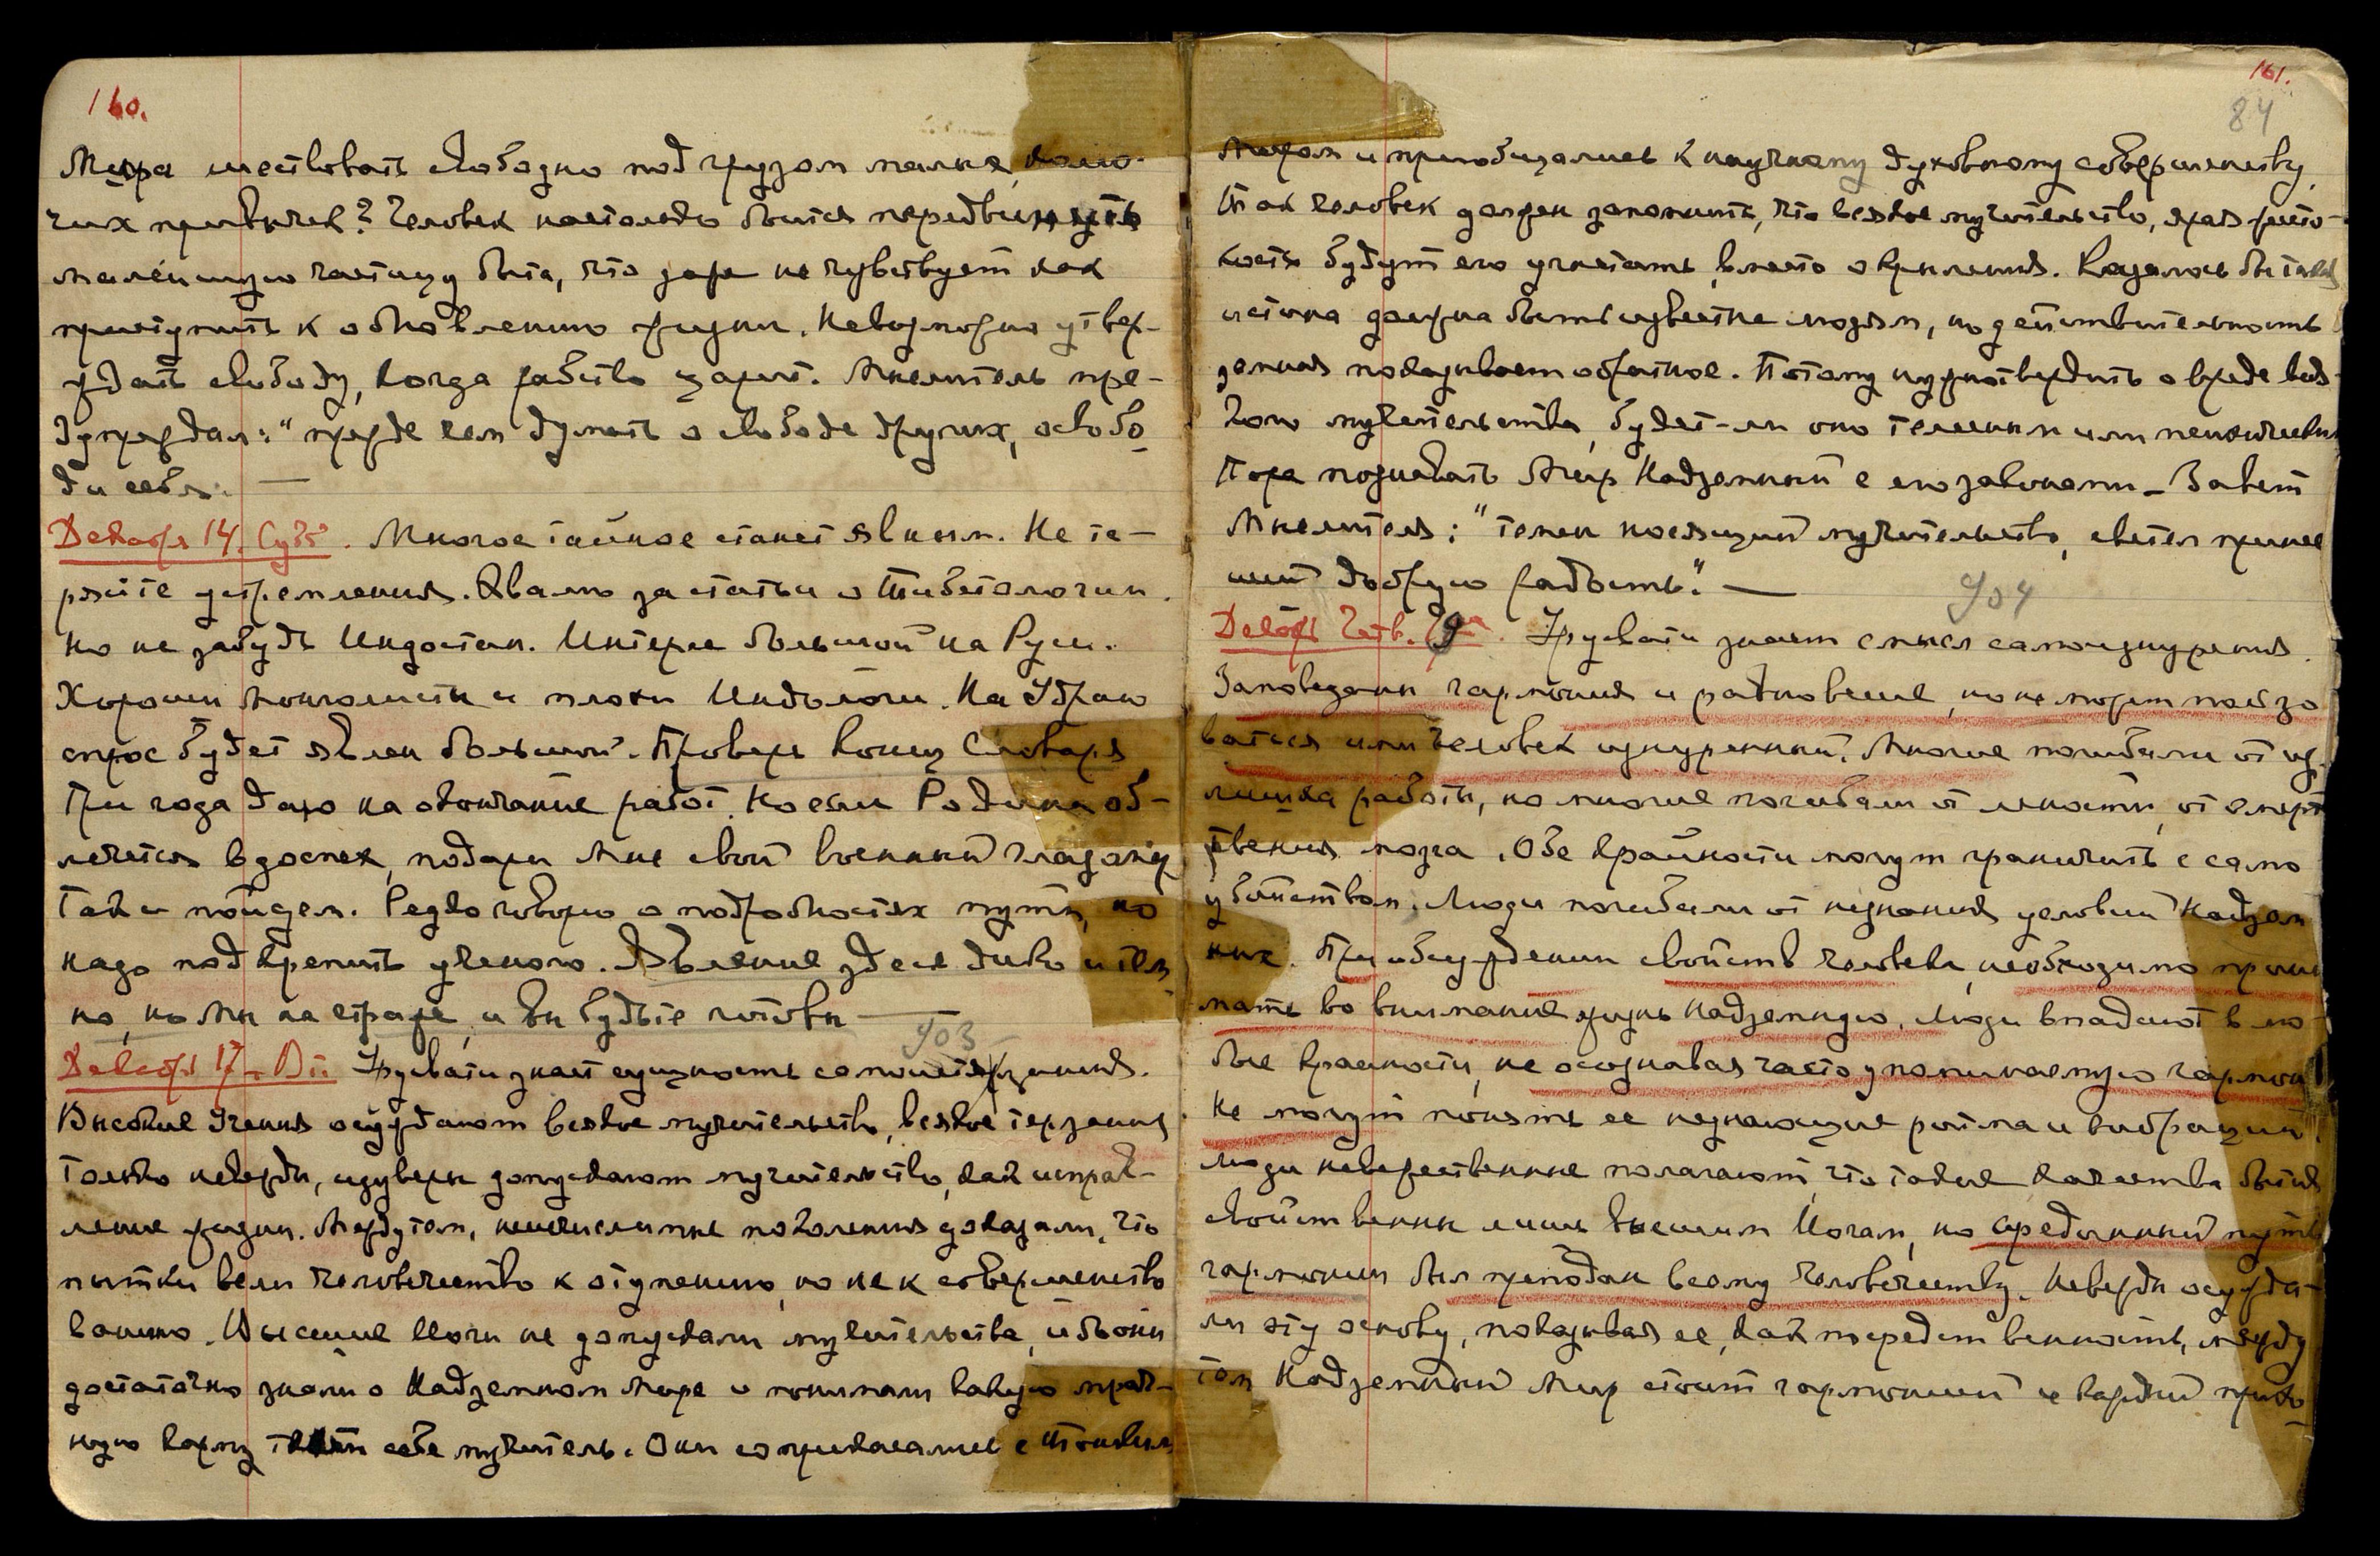 160.
Мира шествовать свободно под грузом малых, домо-
чих привычек? Человек настолько боится передвинуть
малейшую частицу быта, что даже не чувствует как
приступить к обновлению жизни. Невозможно утвер-
ждать свободу, когда рабство царит. Мыслитель пре-
дупреждал: "прежде чем думать о свободе других, освобо
ди себя". —
Декабря 14. Суб. Многое тайное станет явным. Не те-
ряйте устремления. Хвалю за статьи о Тибетологии.
но не забудь Индостан. Интерес большой на Руси.
Хороши монголисты и плохи Индологи. На Удраю
спрос будет явлен большой. Проверь конец Словаря
Три года даю на окончание работ. Но если Родина об-
лечется в доспех, подари Мне свой военный
Так и пойдем. Редко говорю о подробностях пути, но
надо подкрепить ученого. Явление здесь дико и тем
но, но Мы на страже, и вы будьте готовы —
903
Декабря 17. Вт. Урусвати знает сущность самоистязания.
Высокие Учения осуждают всякое мучительство, всякое терзание
только невежды, изуверы допускают мучительство, как исправ-
ление жизни. Между тем, неисчислимые поколения доказали, что
пытки вели человечество к отупению, но не к совершенство
ванию. Высшие Йоги не допускали мучительства, ибо они
достаточно знали о Надземном Мире и понимали какую мрач-
ную карму ткет себе мучитель. Они соприкасались с Тонким
161.
84
Миром и приобщались к научному духовному совершенству.
Так человек должен запомнить, что всякое мучительство, всякая жесто-
кость будут его угнетать, вместо окрыления. Казалось бы такая
истина должна быть известна людям, но действительность
земная показывает обратное. Потому нужно твердить о вреде вся-
кого мучительства, будет-ли оно телесным или психическим
Пора познавать Мир Надземный с его законами — Завет
Мыслителя: "темен носящий мучительство, светел принес
ший добрую радость". —
904
Декабр. Четв. 19. Урусвати знает смысл самоизнурения.
Заповеданы гармония и равновесие, но не может пользо
ваться ими человек изнуренный. Многие погибали от из-
лишка работы, но многие погибали от лености, от омерт
твения мозга. Обе крайности могут граничить с само
убийством. Люди погибали от незнания условий Надзем
ных. При обсуждении свойств человека, необходимо прини
мать во внимание жизнь Надземную. Люди впадают в лю-
бые крайности, не осознавая часто упоминаемую гармон
Не могут понять ее незнающие ритма и вибраций.
Люди невежественные полагают, что такие качества бытия
свойственны лишь высшим Йогам, но срединный путь
гармонии был преподан всему человечеству. Невежды осужда-
ли эту основу, показывая ее, как посредственность, между
тем Надземный Мир стоит гармонией и каждый прико